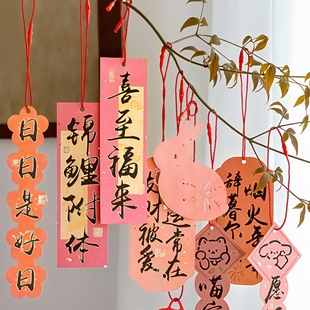 日日是好日
锦鲤附体
喜至福来
被爱
运常在
辞暮尔
烟火年
喵
愿